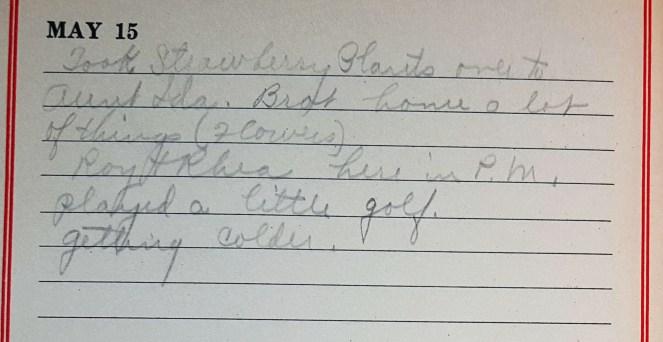 MAY 15
Took Strawberry Plants over to
Aunt Ida. Brot home a lot
of things (Flowers)
Roy & Rhea here in P.M.
played a little golf.
getting colder.